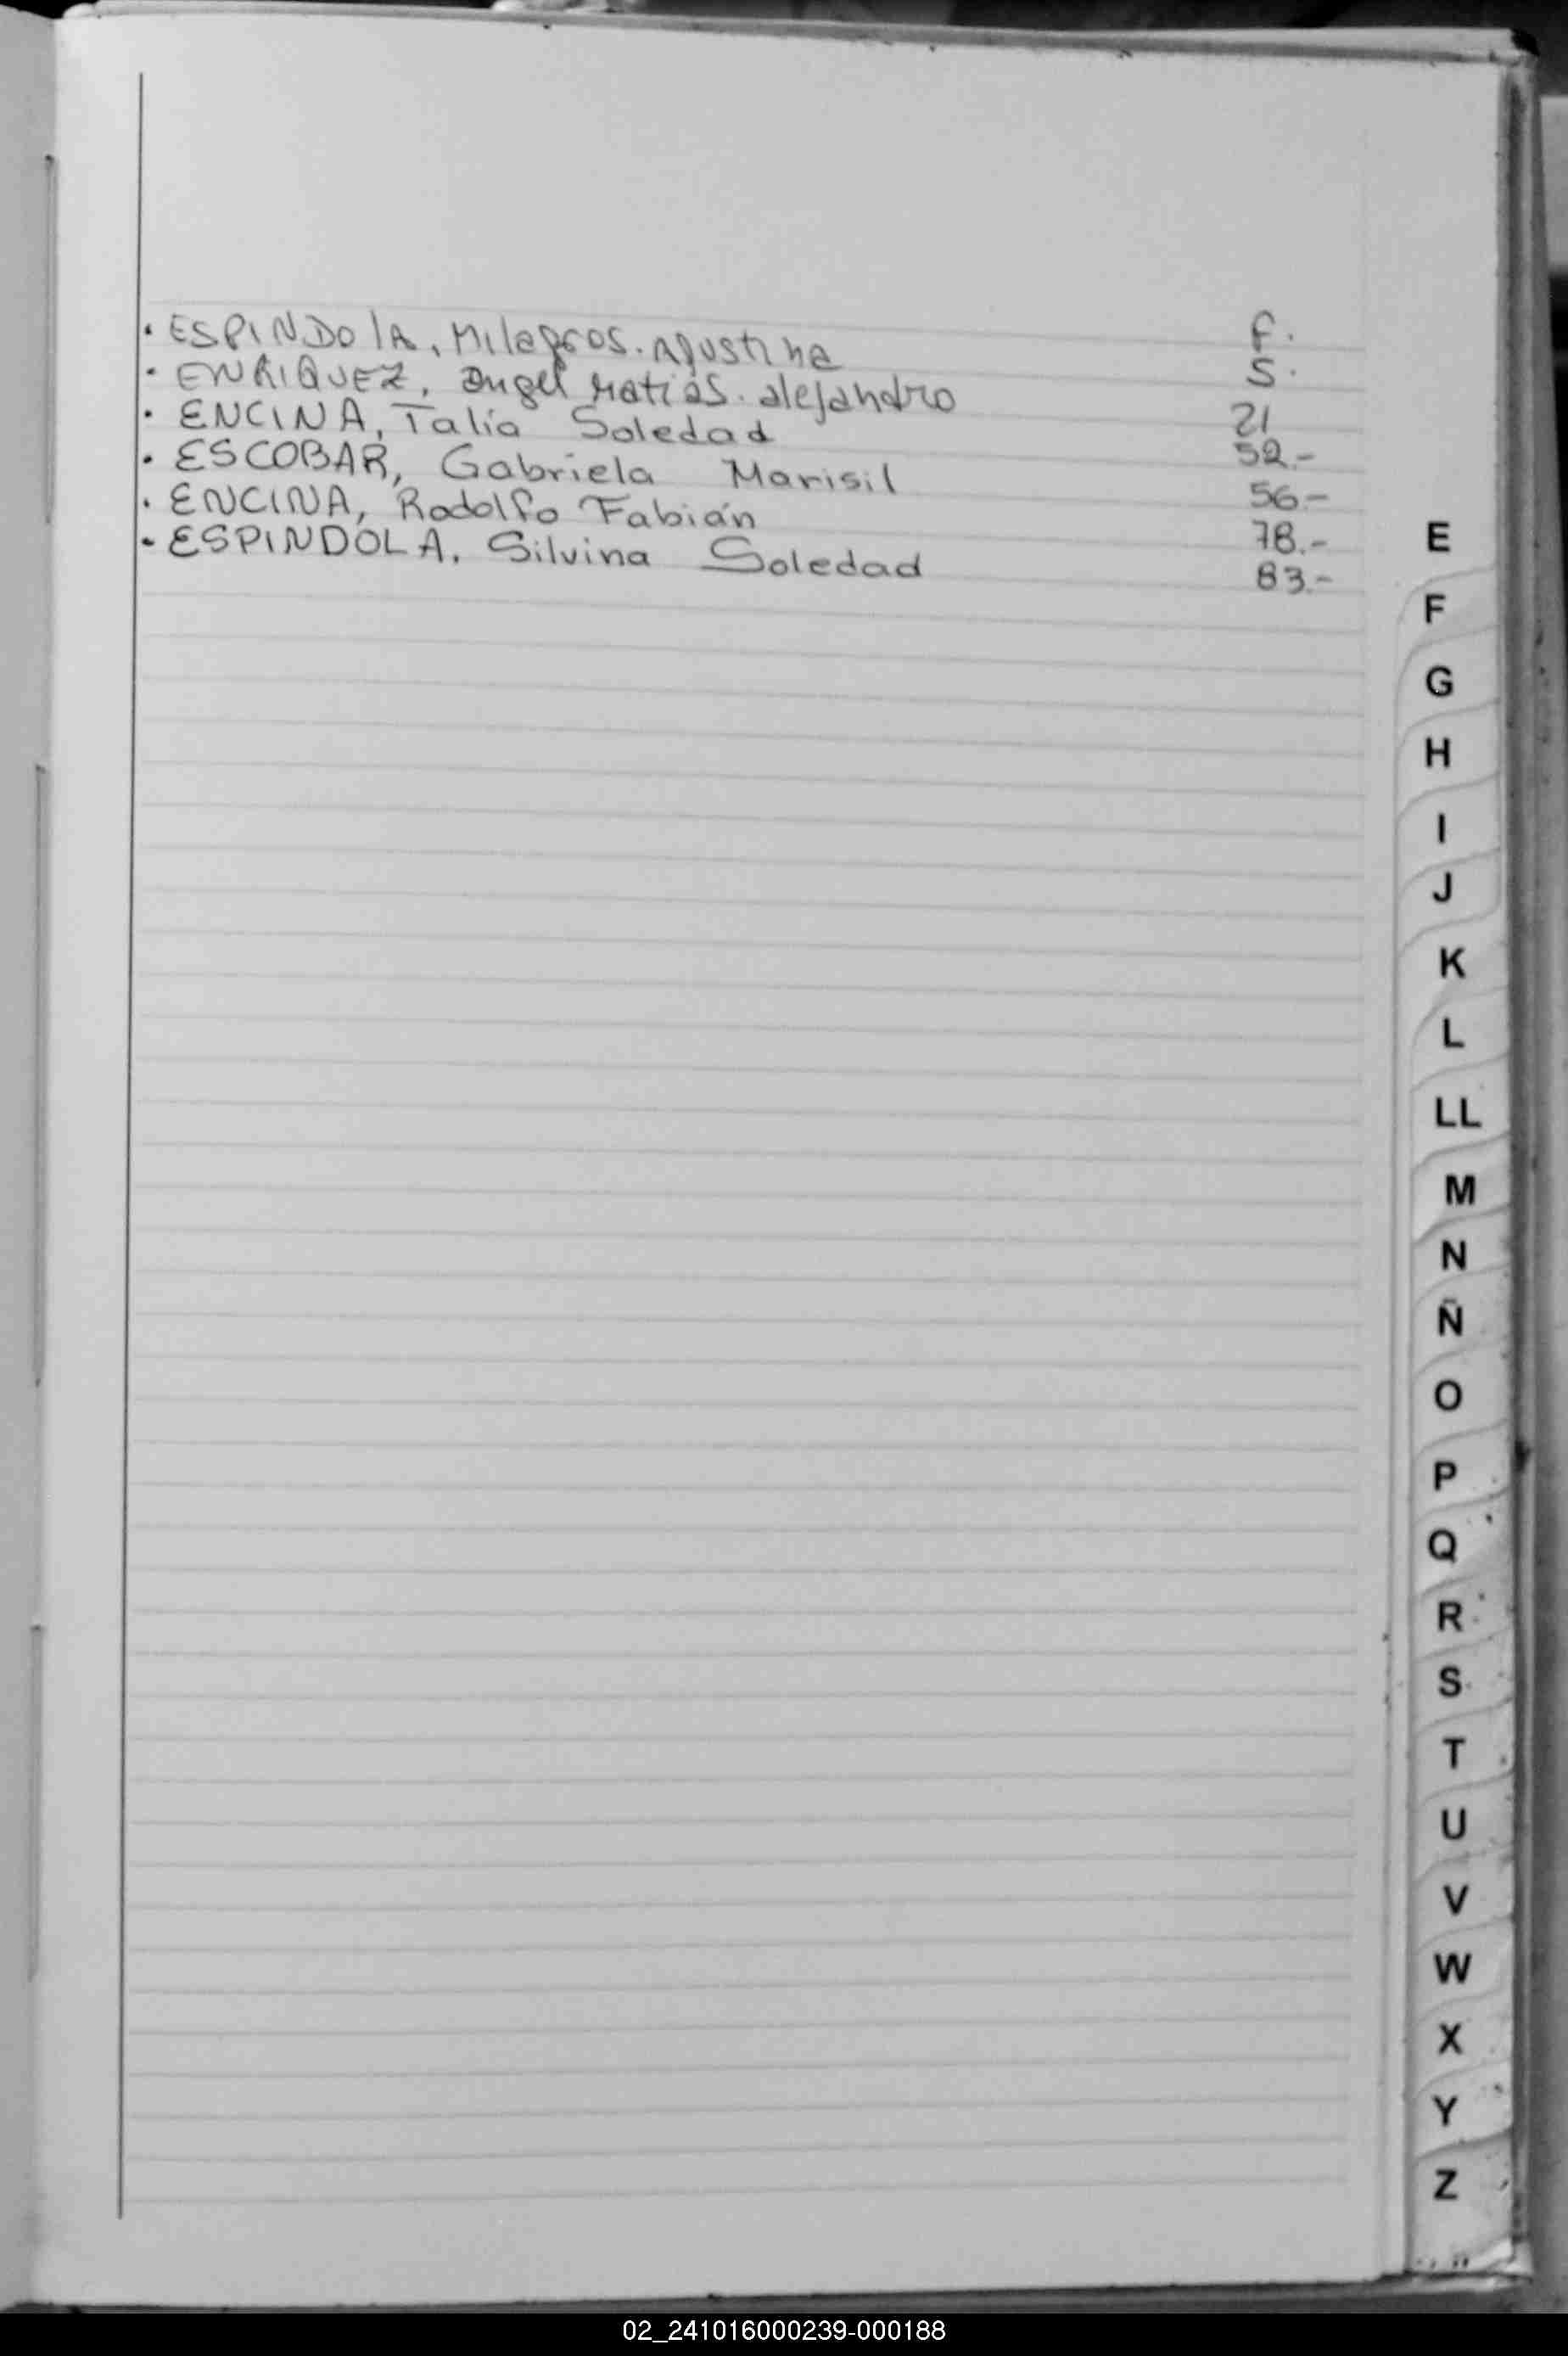 f.
· ESPINDOlA, Milagros. Agustina 5.
· ENRIQUEZ, Angel Matias. alejandro 21
· ENCINA, Talía Soledad 52.-
· ESCOBAR, Gabriela Marisil 56.-
· ENCINA, Rodolfo Fabián 78.-
- ESPINDOLA, Silvina Soledad 83.-
E
F
G
H
I
J
K
L
LL
M
N
Ñ
O
P
Q
R
S
T
U
V
W
X
Y
Z
02_241016000239-000188